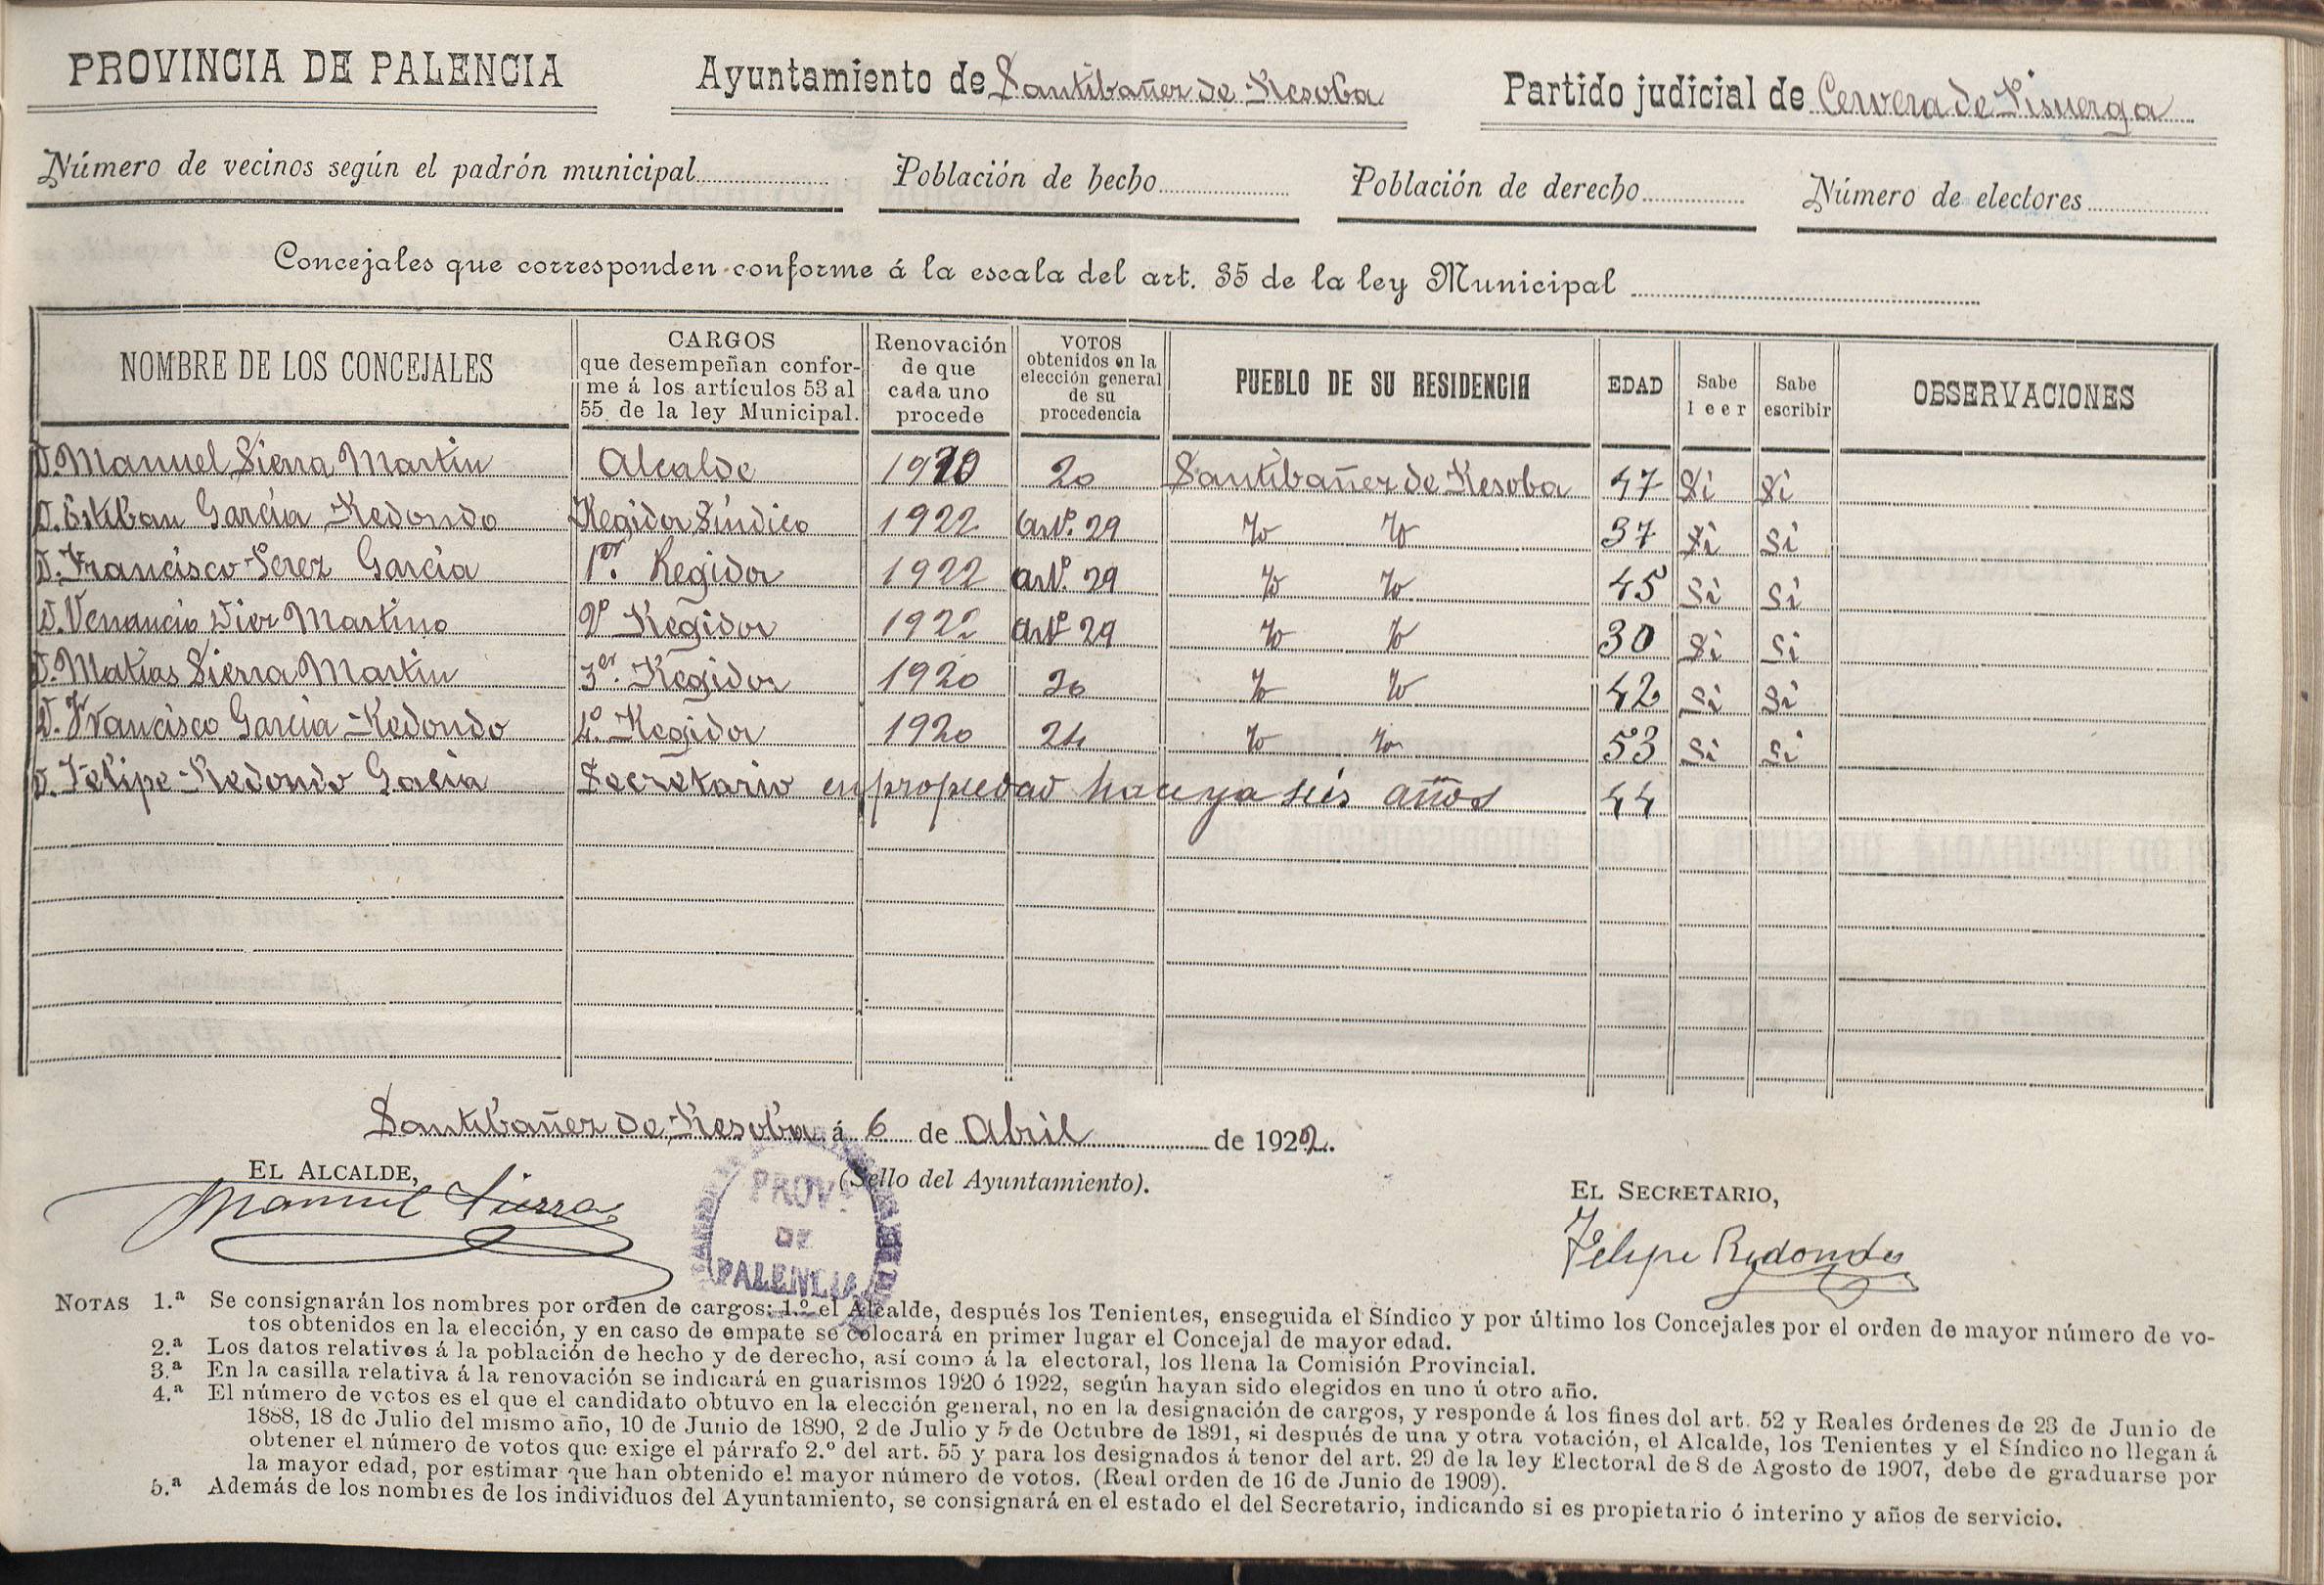 PROVINCIA DE PALENCIA Ayuntamiento de Santibañez de Resoba Partido judicial de Cervera de Pisuerga
Número de vecinos según el padrón municipal Población de hecho Población de derecho Número de electores
Concejales que corresponden conforme á la escala del art. 35 de la ley Municipal
NOMBRE DE LOS CONCEJALES
CARGOS
que desempeñan confor-
me á los artículos 53 al
55 de la ley Municipal.
Renovación
de que
cada uno
procede
VOTOS
obtenidos en la
elección general
de su
procedencia
PUEBLO DE SU RESIDENCIA
EDAD
Sabe
leer
Sabe
escribir
OBSERVACIONES
D. Manuel Sierra Martin Alcalde 1920 20 Santibañez de Resoba 47 Si Si
D. Esteban García Redondo Regidor Síndico 1922 Artº. 29 37 Si Si
D. Francisco Perez García 1er. Regidor 1922 artº. 29 45 Si Si
D. Venancio Diez Martino 2º Regidor 1922 artº 29 30 Si Si
D. Matías Sierra Martin 3er. Regidor 1920 20 42 Si Si
D. Francisco García Redondo 4º. Regidor 1920 24 53 Si Si
D. Felipe Redondo Gacia Secretario en propiedad hace ya seis años 44
Santibañez de Resoba á 6 de Abril de 1922.
EL ALCALDE,
(Sello del Ayuntamiento).
EL SECRETARIO,
Manuel Sierra
PROV.
DE
PALENCIA
Felipe Redondo
NOTAS 1.ª Se consignarán los nombres por orden de cargos: 1.º el Alcalde, después los Tenientes, enseguida el Síndico y por último los Concejales por el orden de mayor número de vo-
tos obtenidos en la elección, y en caso de empate se colocará en primer lugar el Concejal de mayor edad.
2.ª Los datos relativos á la población de hecho y de derecho, así como á la electoral, los llena la Comisión Provincial.
3.ª En la casilla relativa á la renovación se indicará en guarismos 1920 ó 1922, según hayan sido elegidos en uno ú otro año.
4.ª El número de votos es el que el candidato obtuvo en la elección general, no en la designación de cargos, y responde á los fines del art. 52 y Reales órdenes de 23 de Junio de
1888, 18 de Julio del mismo año, 10 de Junio de 1890, 2 de Julio y 5 de Octubre de 1891, si después de una y otra votación, el Alcalde, los Tenientes y el Síndico no llegan á
obtener el número de votos que exige el párrafo 2.º del art. 55 y para los designados á tenor del art. 29 de la ley Electoral de 8 de Agosto de 1907, debe de graduarse por
la mayor edad, por estimar que han obtenido el mayor número de votos. (Real orden de 16 de Junio de 1909).
5.ª Además de los nombres de los individuos del Ayuntamiento, se consignará en el estado el del Secretario, indicando si es propietario ó interino y años de servicio.